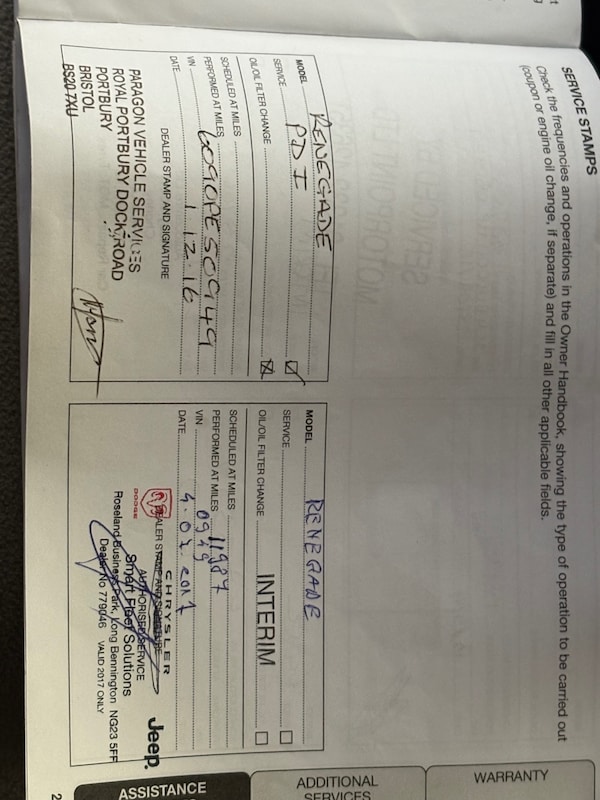 SERVICE STAMPS
Check the frequencies and operations in the Owner Handbook, showing the type of operation to be carried out
(coupon or engine oil change, if separate) and fill in all other applicable fields.
MODEL RENEGADE
SERVICE PDI
OIL/OIL FILTER CHANGE
SCHEDULED AT MILES
PERFORMED AT MILES
VIN 609OPES0949
DATE 1.12.16
DEALER STAMP AND SIGNATURE
PARAGON VEHICLE SERVICES
ROYAL PORTBURY DOCK ROAD
PORTBURY
BRISTOL
BS20 7XU
MODEL RENEGADE
SERVICE
OIL/OIL FILTER CHANGE INTERIM
SCHEDULED AT MILES
PERFORMED AT MILES 11987
VIN 0949
DATE 4.07.2017
DEALER STAMP AND SIGNATURE
CHRYSLER
Jeep
DODGE
AUTHORISED SERVICE
Smart Fleet Solutions
Roseland Business Park, Long Bennington NG23 5FF
Dealer No 779046 VALID 2017 ONLY
WARRANTY
ADDITIONAL
SERVICES
ASSISTANCE
2